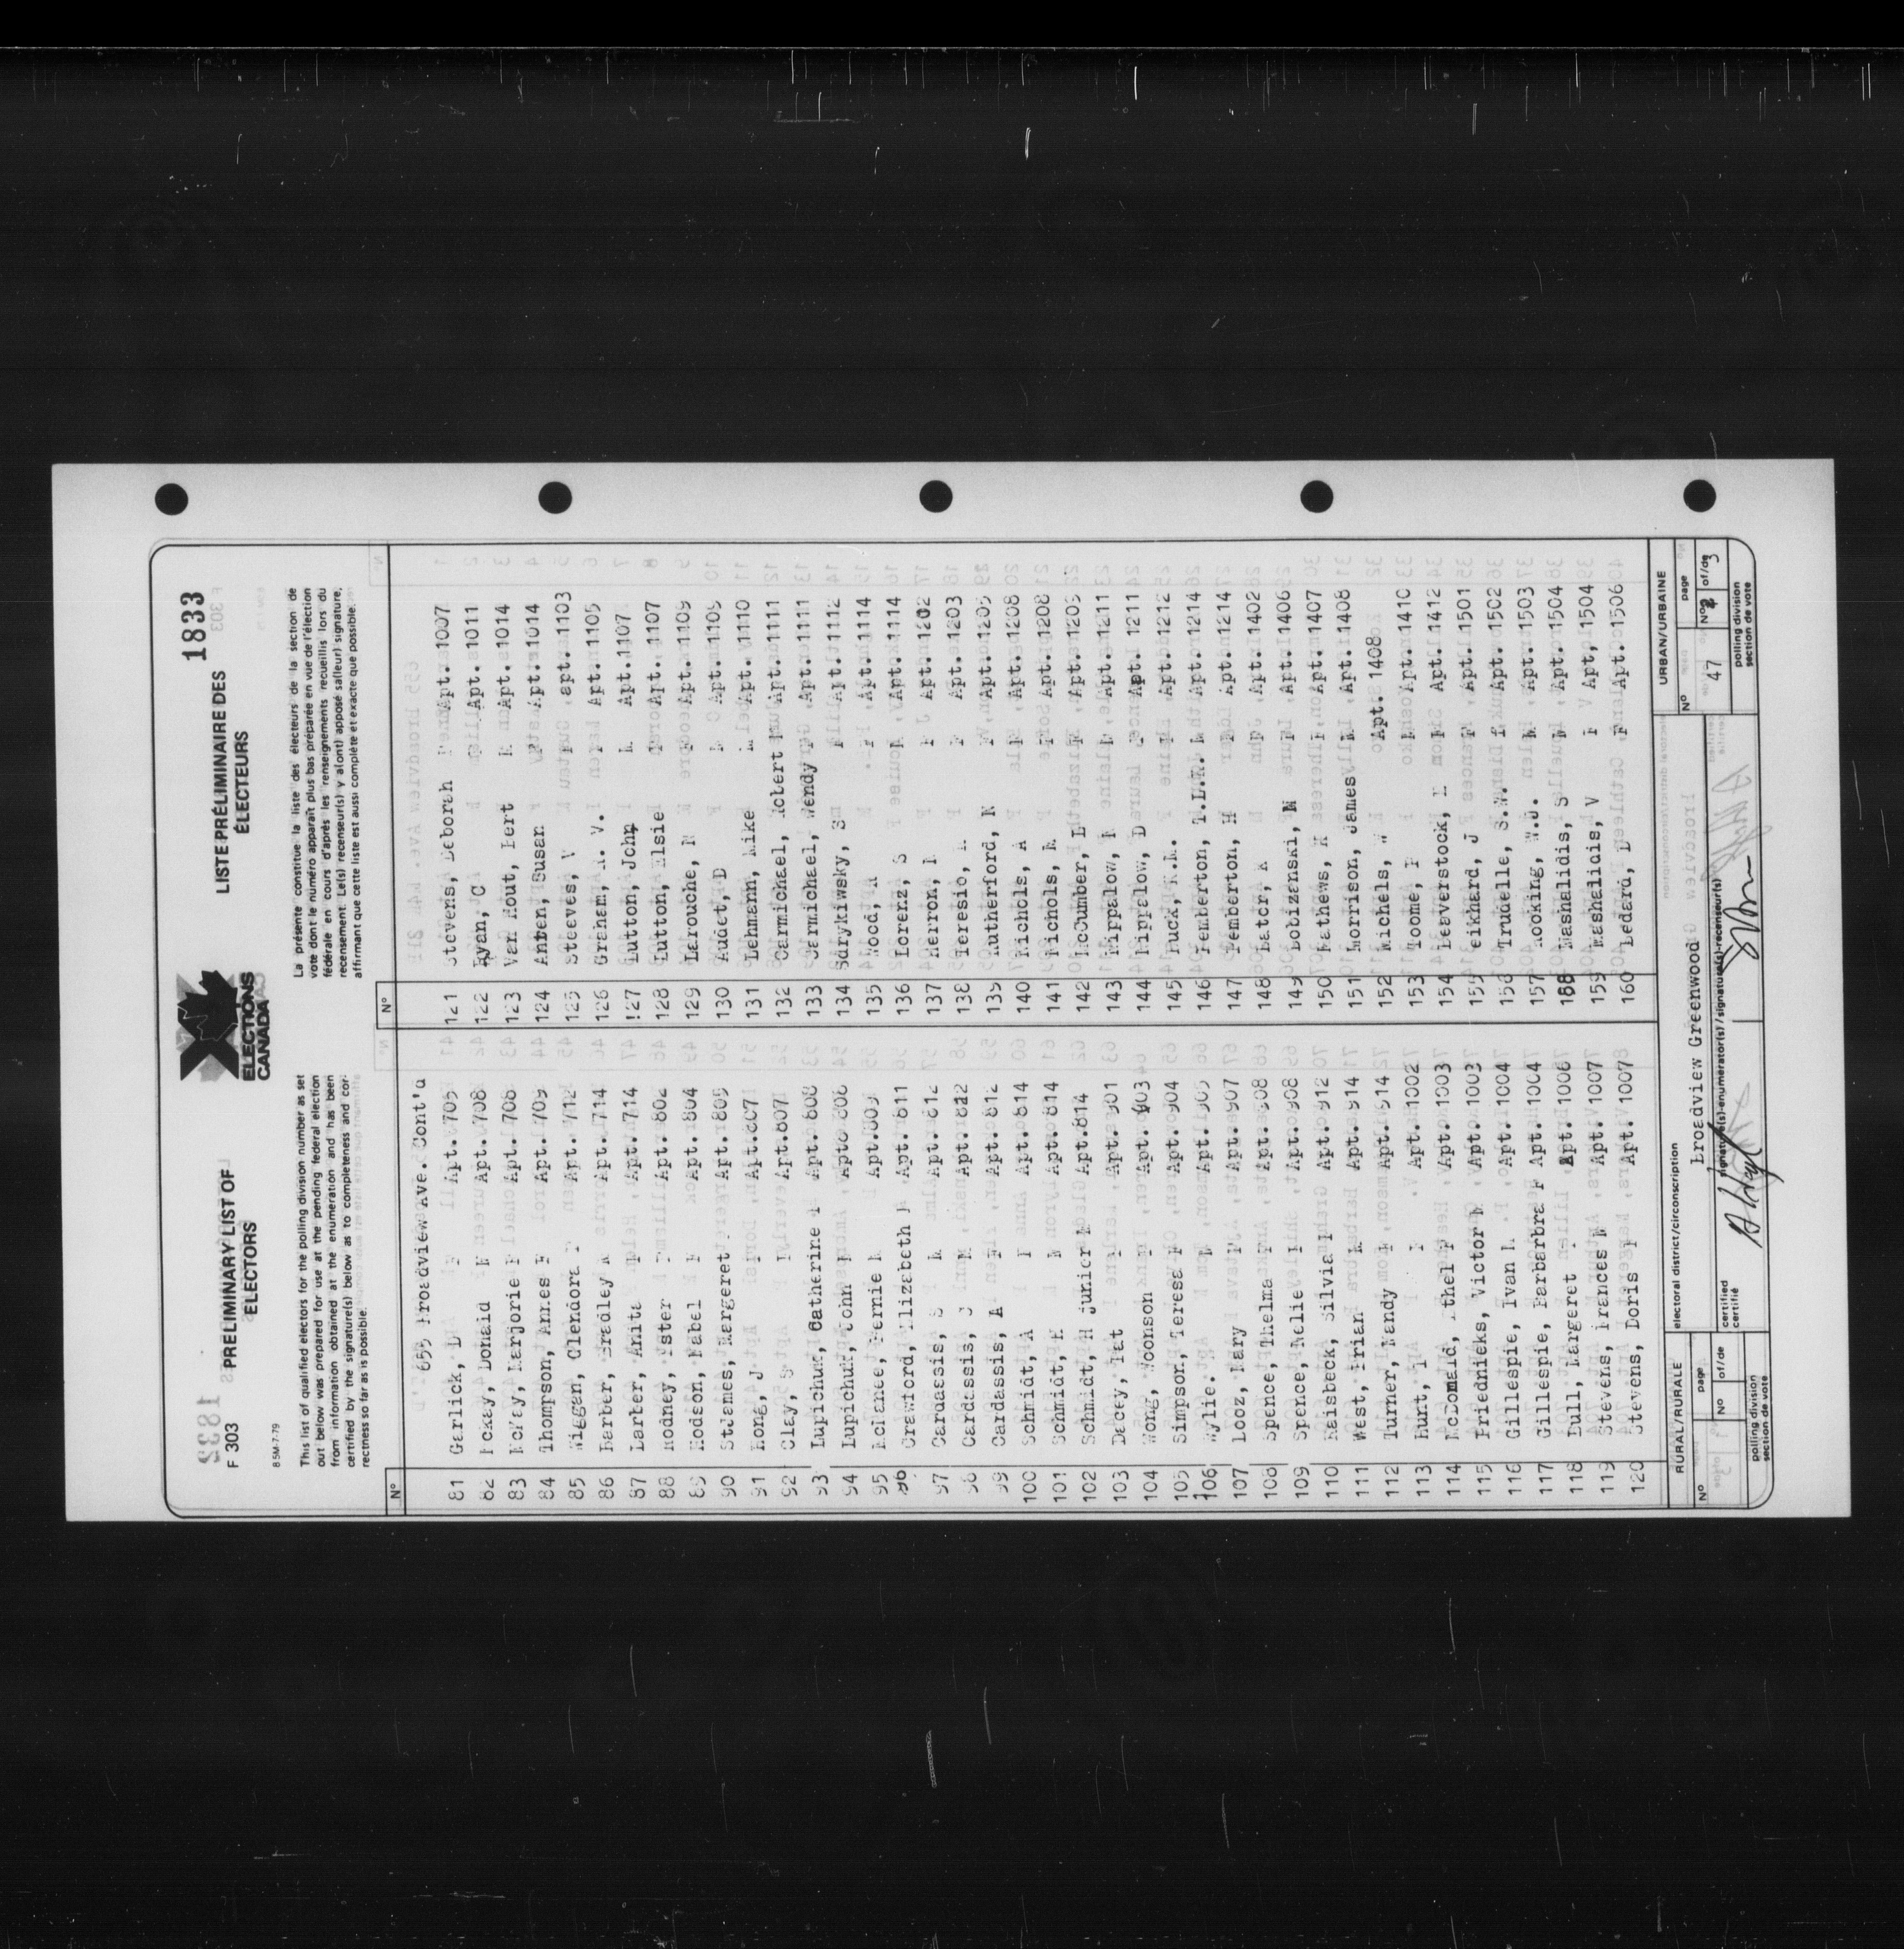 1833
F 303 PRELIMINARY LIST OF ELECTORS
ELECTIONS CANADA
LISTE PRÉLIMINAIRE DES ÉLECTEURS
85M-7-79
This list of qualified electors for the polling division number as set
out below was prepared for use at the pending federal election
from information obtained at the enumeration and has been
certified by the signature(s) below as to completeness and cor-
rectness so far as is possible.
La présente constitue la liste des électeurs de la section de
vote dont le numéro apparaît plus bas préparée en vue de l'élection
fédérale en cours d'après les renseignements recueillis lors du
recensement. Le(s) recenseur(s) y a(ont) apposé sa(leur) signature,
affirmant que cette liste est aussi complète et exacte que possible.
Nº
655 Broadview Ave. Cont'd
81 Garlick, D Apt. 705
82 McKay, Donald Apt. 708
83 McKay, Marjorie F Apt. 708
84 Thompson, Annes F Apt. 709
85 Wiggan, Glendora Apt. 712
86 Barber, Bradley M Apt. 714
87 Barber, Anita Apt. 714
88 Rodney, Ester Apt. 802
89 Hodson, Mabel F Apt. 804
90 StJames, Margeret Apt. 805
91 Hong, J Apt. 807
92 Clay, S Apt. 807
93 Lupichuk, Catherine Apt. 808
94 Lupichuk, John Apt. 808
95 McLanee, Bernie Apt. 809
96 Crawford, Elizabeth Apt. 811
97 Cardassis, S Apt. 812
98 Cardassis, J M Apt. 812
99 Cardassis, A F Apt. 812
100 Schmidt, A Apt. 814
101 Schmidt, H Apt. 814
102 Schmidt, H junior M Apt. 814
103 Dacey, Pat Apt. 901
104 Wong, Woonson Apt. 903
105 Simpson, Teresa F Apt. 904
106 Wylie. Apt. 905
107 Looz, Mary F Apt. 907
108 Spence, Thelma F Apt. 908
109 Spence, Nellie Apt. 908
110 Raisbeck, Silvia F Apt. 912
111 West, Brian M Apt. 914
112 Turner, Wendy F Apt. 914
113 Hunt, Apt. 1002
114 McDonald, Ethel F Apt. 1003
115 Friednieks, Victor M Apt. 1003
116 Gillespie, Ivan Apt. 1004
117 Gillespie, Barbarbra F Apt. 1004
118 Bull, Margeret Apt. 1006
119 Stevens, Frances Apt. 1007
120 Stevens, Doris F Apt. 1007
Nº
121 Stevens, Deborah F Apt. 1007
122 Ryan, C Apt. 1011
123 Van Hout, Bert M Apt. 1014
124 Susan F Apt. 1014
125 Steeves, V F apt. 1103
126 Graham, V. Apt. 1105
127 Lutton, John M Apt. 1107
128 Lutton, Elsie F Apt. 1107
129 Larouche, M Apt. 1109
130 Audet, D Apt. 1109
131 Lehmann, Mike M Apt. 1110
132 Carmichael, Robert M Apt. 1111
133 Carmichael, Wendy F Apt. 1111
134 Sdrykiwsky, S Apt. 1112
135 Wood, Apt. 1114
136 Lorenz, S Apt. 1114
137 Herron, Apt. 1202
138 Teresio, Apt. 1203
139 Rutherford, Apt. 1205
140 Nichols, A Apt. 1208
141 Nichols, Apt. 1208
142 McCumber, L Apt. 1209
143 Apt. 1211
144 Apt. 1211
145 Puck, Apt. 1212
146 Pemberton, Apt. 1214
147 Pemberton, H Apt. 1214
148 Apt. 1402
149 Lobizanski, Apt. 1406
150 Mathews, Apt. 1407
151 Morrison, James M Apt. 1408
152 Michels, W Apt. 1408
153 Toome, Apt. 1410
154 Leaverstock, Apt. 1412
155 eikhard, J Apt. 1501
156 Trudelle, S.W. Apt. 1502
157 Hooking, W.J. Apt. 1503
158 Mashalidis, S M Apt. 1504
159 Mashalidis, V F Apt, 1504
160 Ledard, Apt. 1506
RURAL/RURALE
Nº
page
Nº of/de
polling division
section de vote
electoral district/circonscription
Broadview Greenwood
certified
certifié
signature(s)-enumerator(s)/signature(s)-recenseur(s)
URBAN/URBAINE
Nº 47
page
Nº 2 of/de 3
polling division
section de vote